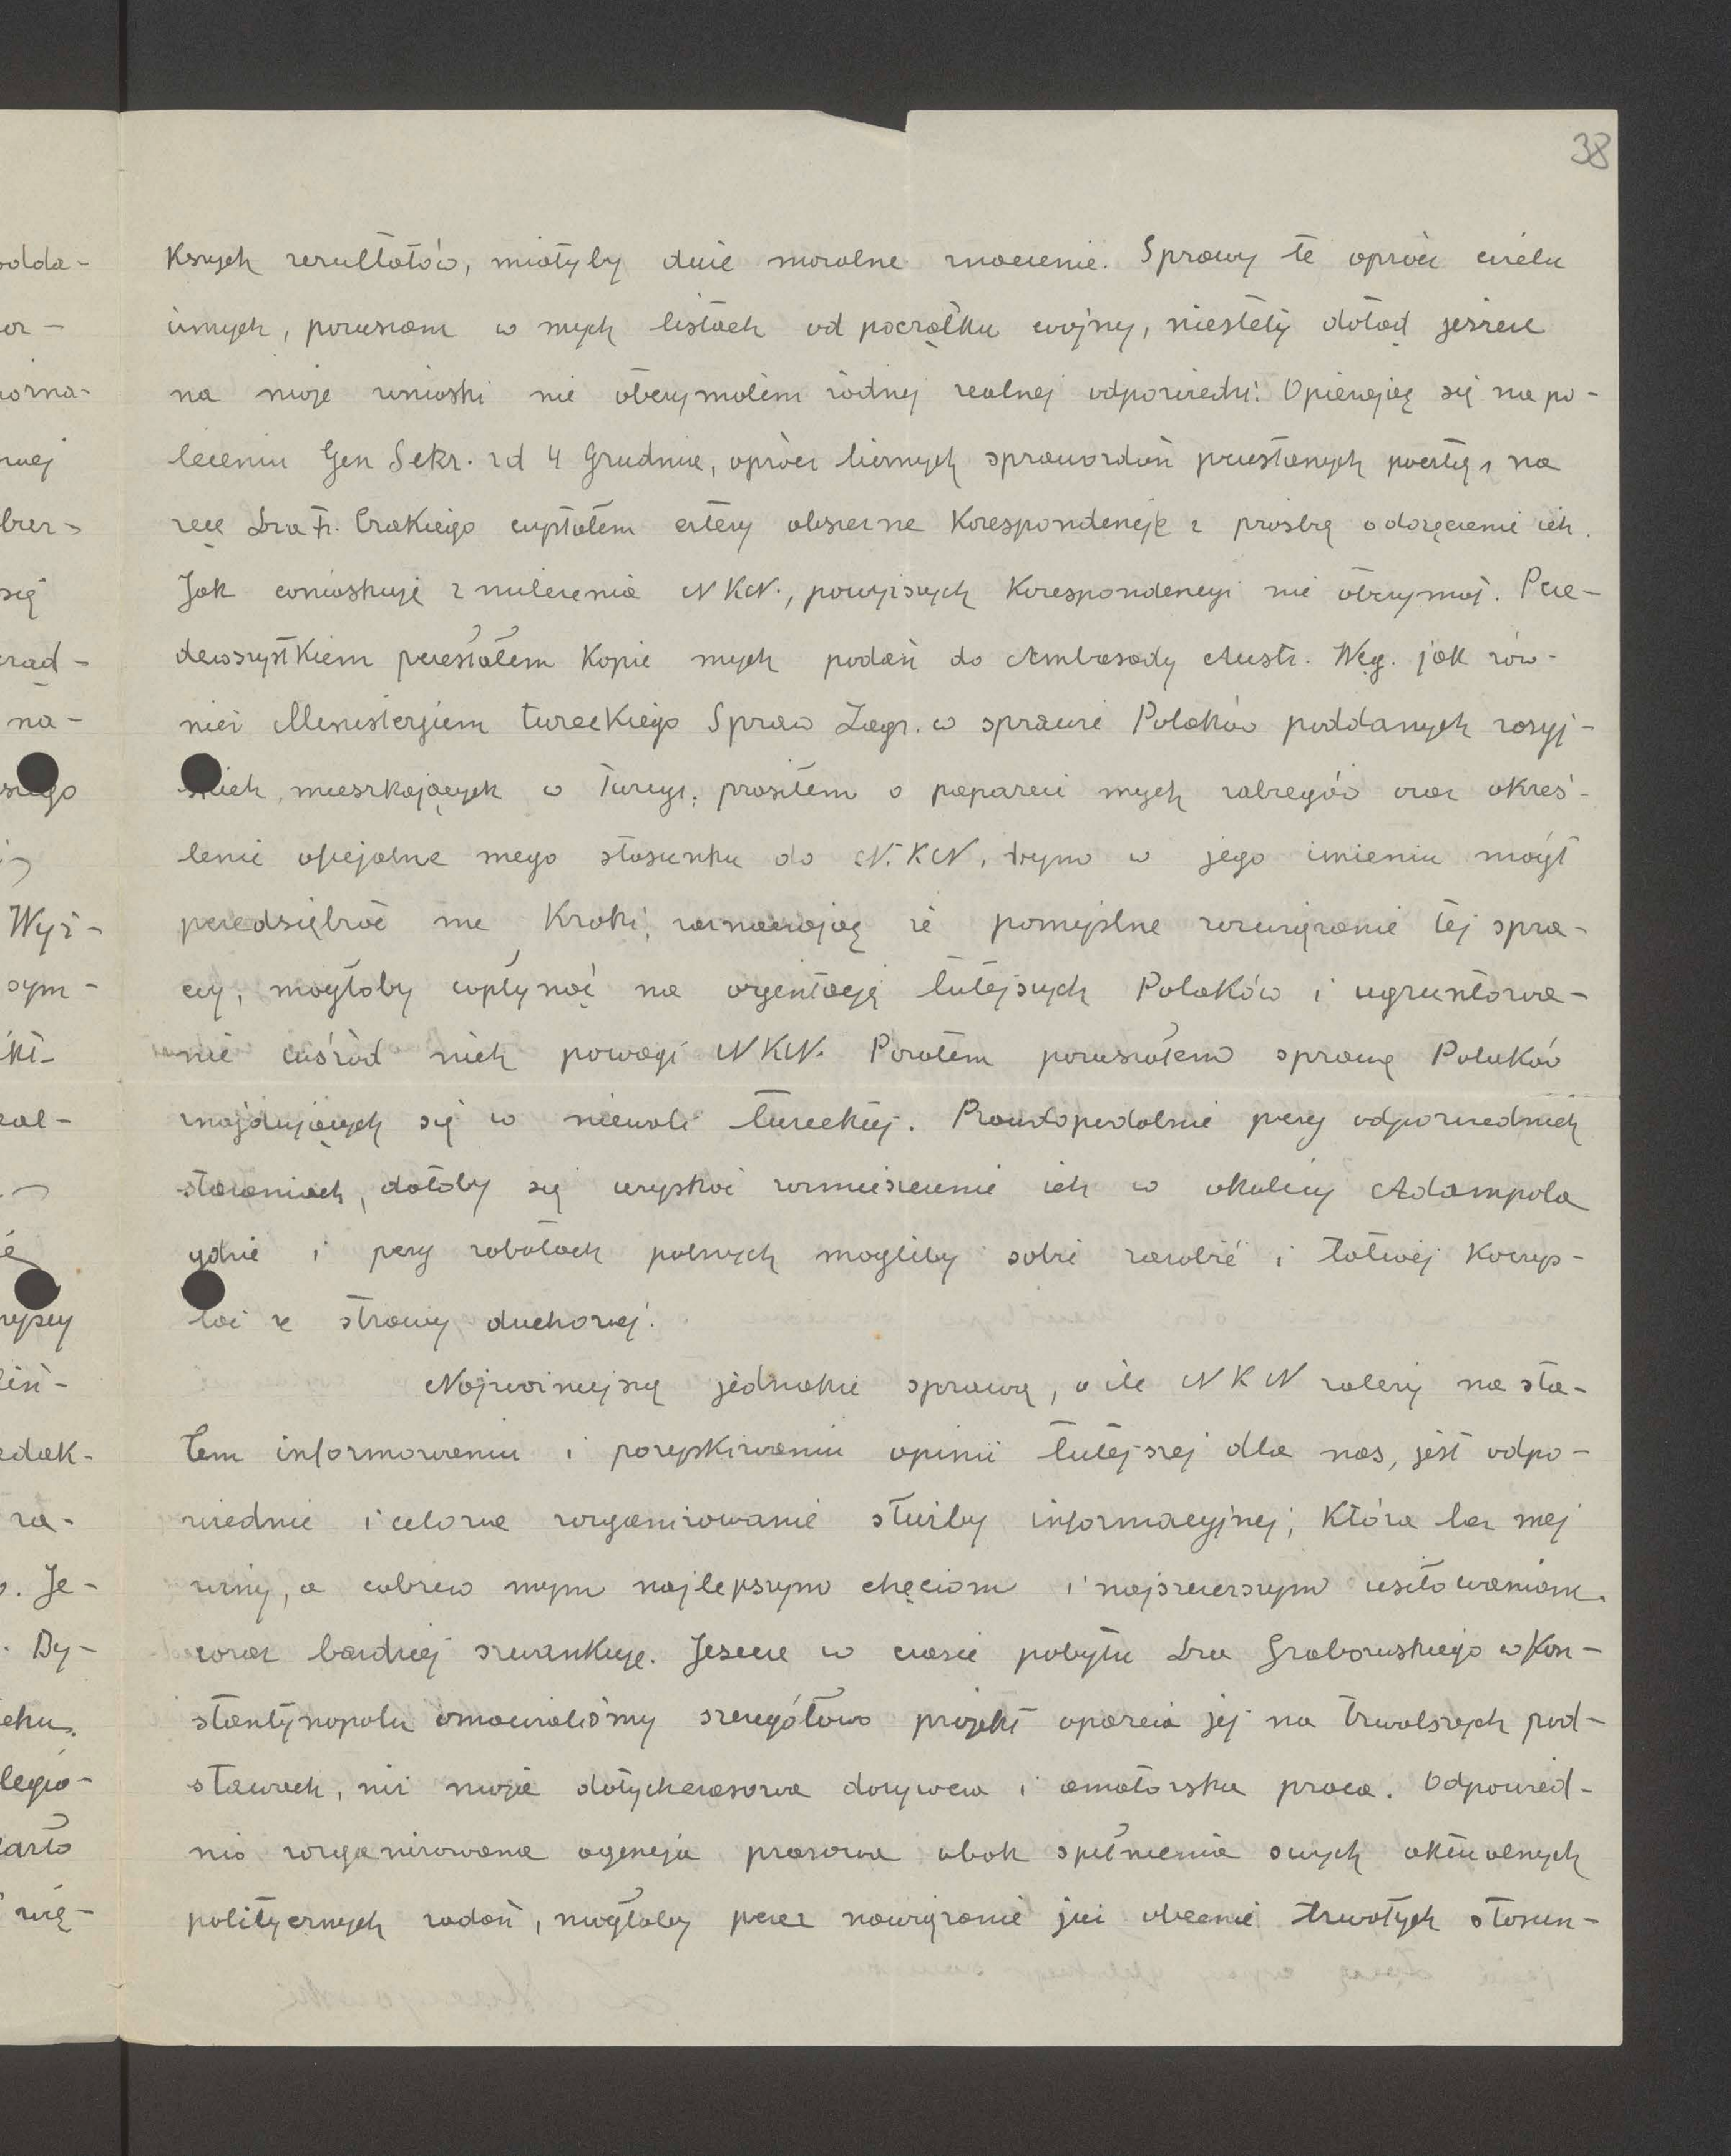 38
kszych rezultatów, miałyby duże moralne znaczenie. Sprawy te oprócz wielu
innych, poruszam w mych listach od początku wojny, niestety dotąd jeszcze
na moje wnioski nie otrzymałem żadnej realnej odpowiedzi. Opierając się na po-
leceniu Gen Sekr. zd 4 Grudnia, oprócz licznych sprawozdań przesłanych pocztą, na
ręce Dra Fr. wysłałem cztery obszerne Korespondencje z prośbą o doręczenie ich.
Jak wnioskuję z milczenia NKN., powyższych Korespondencyi nie otrzymał. Prze-
dewszystkiem przesłałem Kopie mych podań do Ambasady Austr. Węg. jak rów-
nież Ministerjum tureckiego Spraw Zagr. w sprawie Polaków poddanych rosyj-
skich, mieszkających w Turcyi; prosiłem o poparcie mych zabiegów oraz okreś-
lenie oficjalne mego stosunku do N.K.N, bym w jego imieniu mógł
przedsiębrać me Kroki, zaznaczając że pomyślne rozwiązanie tej spra-
wy, mogłoby wpłynąć na orjentację tutejszych Polaków i ugruntowa-
nie wśród nich powagi NKN. Pozatem poruszałem sprawę Polaków
znajdujących się w niewoli tureckiej. Prawdopodobnie przy odpowiednich
staraniach, dałoby się uzyskać rozmieszczenie ich w okolicy Adampola
gdzie i przy robotach polnych mogliby sobie zarobić i łatwiej Korzys-
tać ze strawy duchowej.
Najważniejszą jednakże sprawą, o ile NKN zależy na sta-
łem informowaniu i pozyskiwaniu opinii tutejszej dla nas, jest odpo-
wiednie i celowe zorganizowanie służby informacyjnej, Która bez mej
winy, a wbrew mym najlepszym chęciom i najszczerszym usiłowaniom
coraz bardziej szwankuje. Jeszcze w czasie pobytu Dra Grabowskiego w Kon-
stantynopolu omawialiśmy szczegółowo projekt oparcia jej na trwalszych pod-
stawach, niż moja dotychczasowa dorywcza i amatorska praca. Odpowied-
nio zorganizowana agencja prasowa obok spełnienia swych aktualnych
politycznych zadań, mogłaby przez nawiązanie już obecnie trwałych stosun-